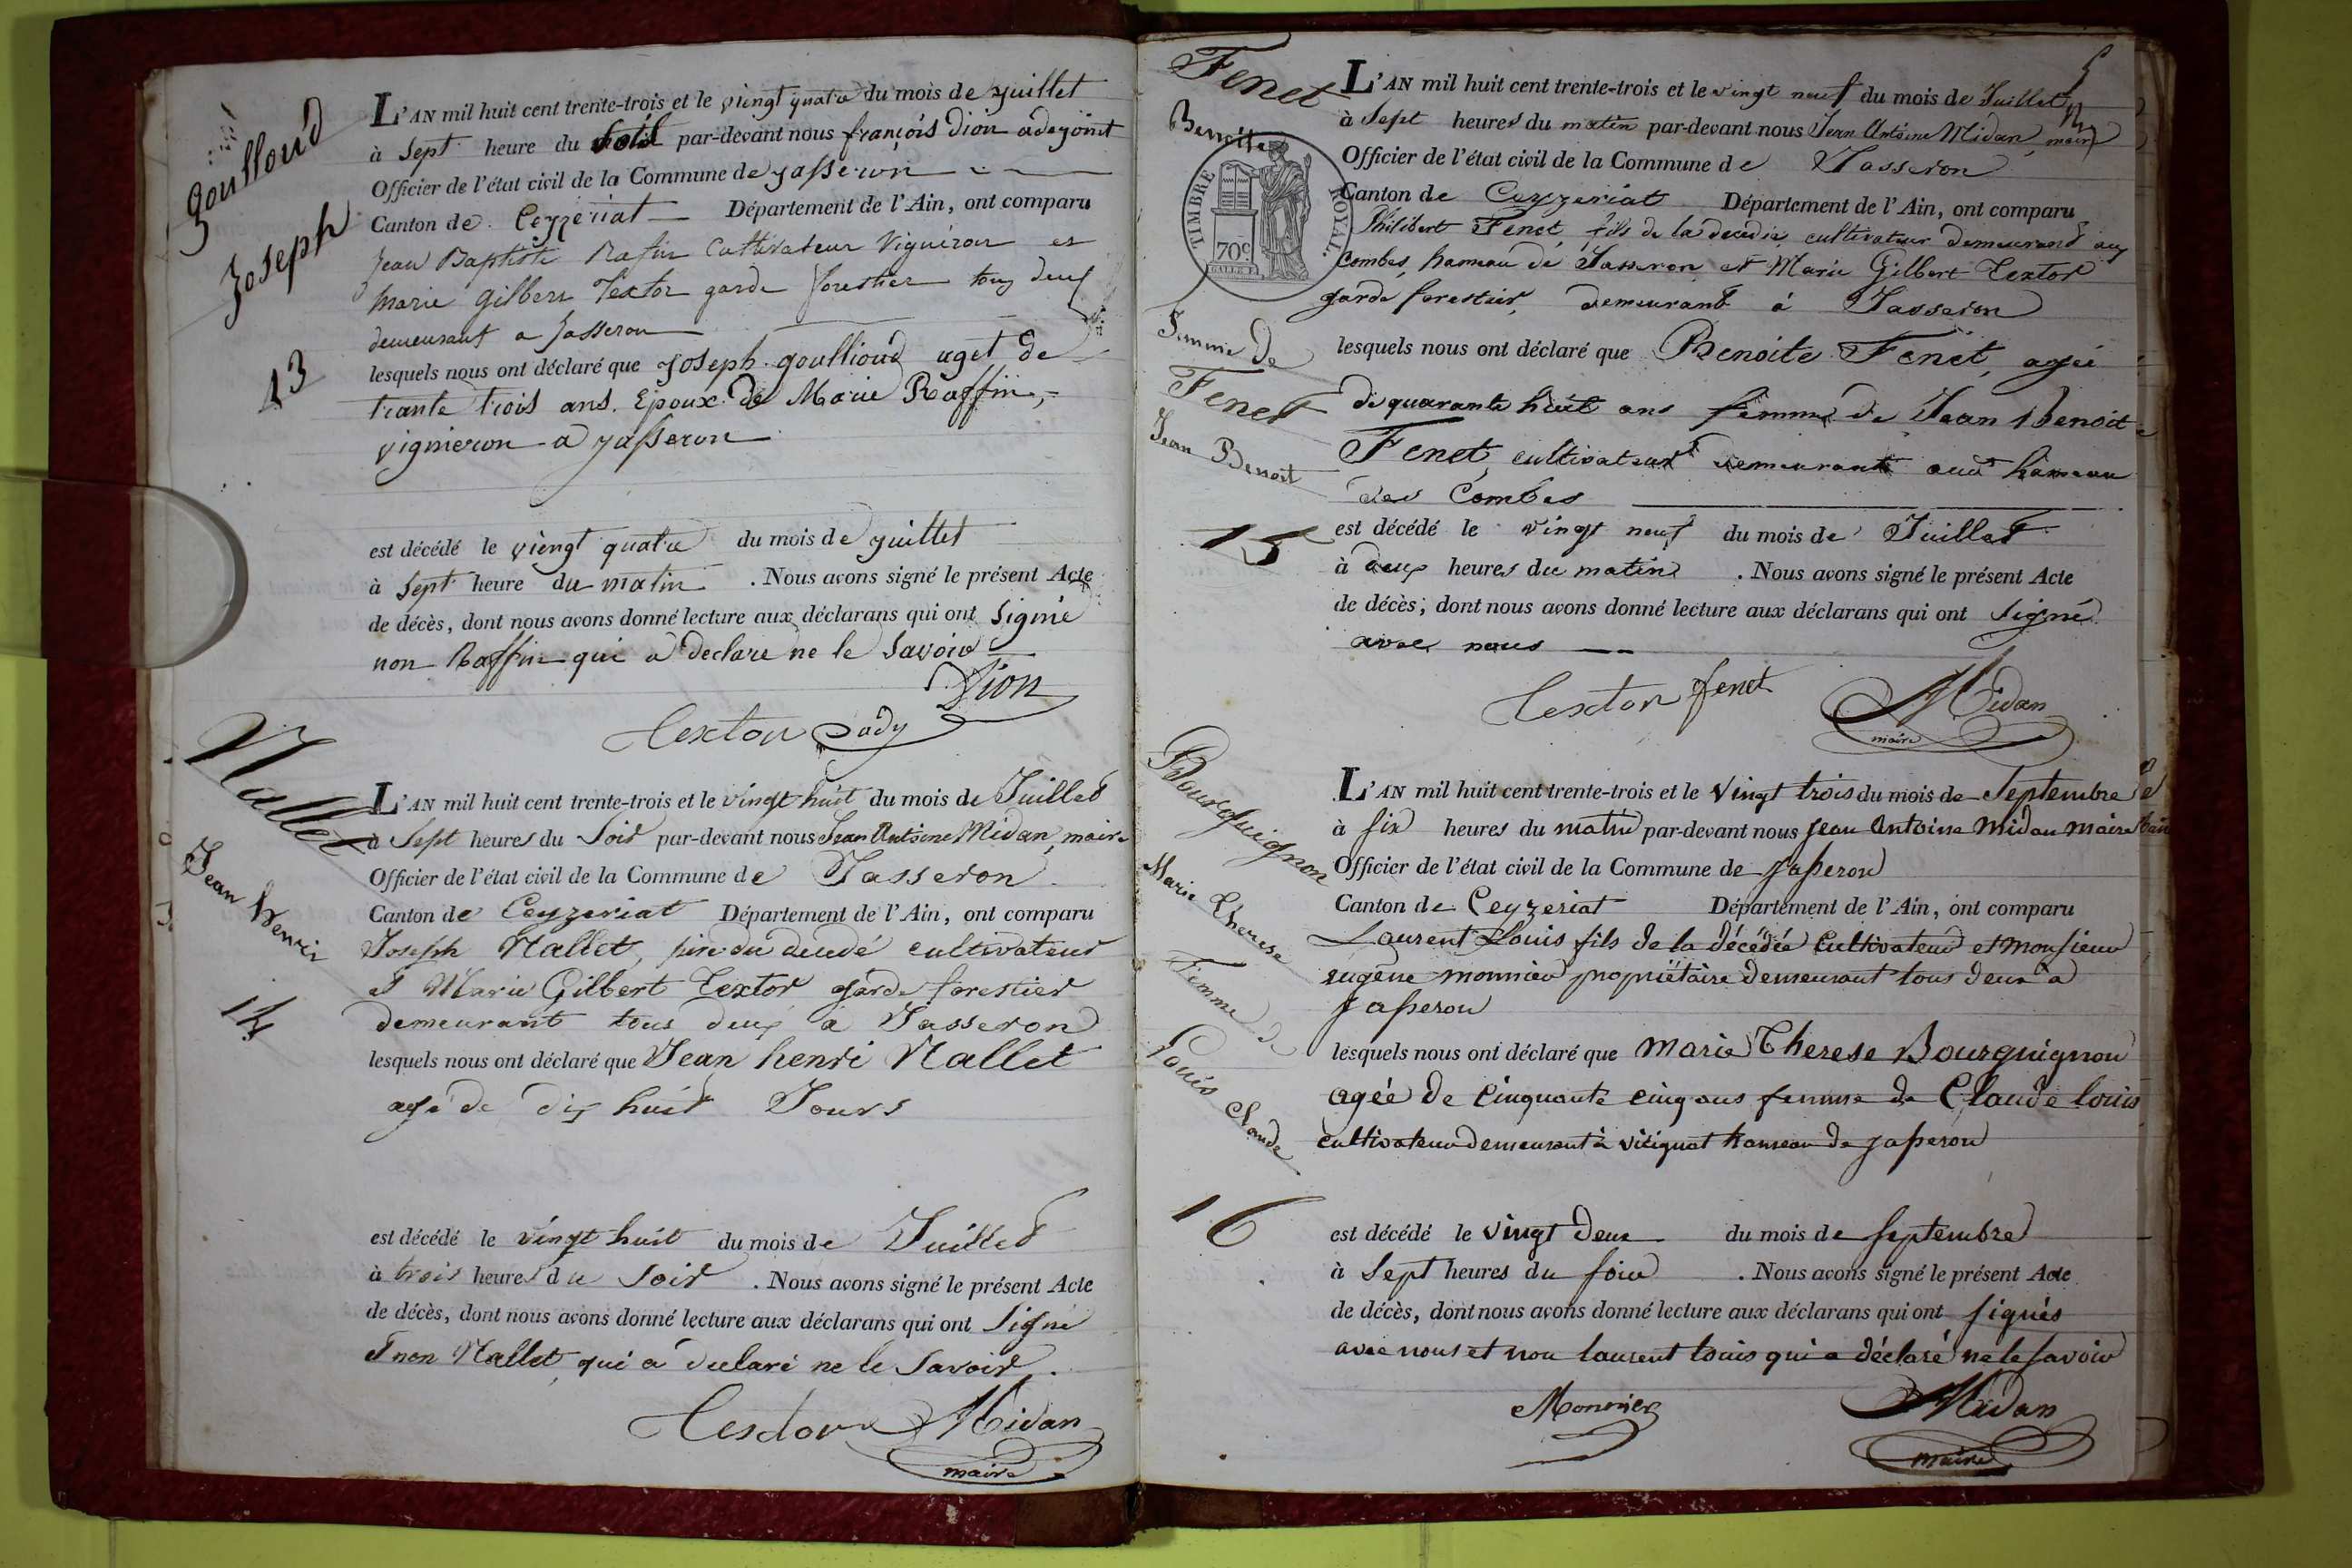 Goulloud
Joseph
13
L'AN mil huit cent trente-trois et le viengt quatre du mois de juillet
à sept heure du soir par-devant nous françois Dion adegoint
Officier de l'état civil de la Commune de jasseron
Canton de Ceyzeriat Département de l'Ain, ont comparu
Jean Baptiste Rafin Cultivateur Vigneron et
Marie gilbert Textor garde forestier tous deux
demeurant a Jasseron
lesquels nous ont déclaré que joseph goullioud aget de
trante trois ans. Epoux de Marie Raffin,
vignieron a jasseron
est décédé le viengt quatre du mois de juillet
à sept heure du matin . Nous avons signé le présent Acte
de décès, dont nous avons donné lecture aux déclarans qui ont signé
non Raffin qui a declare ne le savoir
Dion
Textor ady
Nallet
Jean henri
14
L'AN mil huit cent trente-trois et le vingt huit du mois de Juillet
à Sept heures du Soir par-devant nous Jean Antoine Midan, maire
Officier de l'état civil de la Commune de Jasseron
Canton de Ceyzeriat Département de l'Ain, ont comparu
Joseph Nallet, père du décédé cultivateur
et Marie Gilbert Textor garde forestier
demeurant tous deux à Jasseron
lesquels nous ont déclaré que Jean henri Nallet
agé de dix huit Jours
est décédé le vingt huit du mois de Juillet
à trois heures du Soir . Nous avons signé le présent Acte
de décès, dont nous avons donné lecture aux déclarans qui ont Signé
et non Nallet qui a déclaré ne le Savoir.
Textor Midan
maire
5
Fenet
Benoite
TIMBRE ROYAL.
70c
Femme de
Fenet
Jean Benoit
15
L'AN mil huit cent trente-trois et le vingt neuf du mois de Juillet
à Sept heures du matin par-devant nous Jean Antoine Midan, maire
Officier de l'état civil de la Commune de Jasseron
Canton de Ceyzeriat Département de l'Ain, ont comparu
Philibert Fenet, fils de la décédée, cultivateur demeurant aux
Combes, hameau de Jasseron et Marie Gilbert Textor
garde forestier, demeurant à Jasseron
lesquels nous ont déclaré que Benoite Fenet, agée
de quarante huit ans femme de Jean Benoit
Fenet, cultivateur demeurant au hameau
des Combes
est décédé le vingt neuf du mois de Juillet
à deux heures du matin . Nous avons signé le présent Acte
de décès, dont nous avons donné lecture aux déclarans qui ont signé
avec nous
Textor fenet Midan
maire
Bourguignon
Marie Therese
Femme de
Louis Claude
16
L'AN mil huit cent trente-trois et le Vingt trois du mois de Septembre
à six heures du matin par-devant nous Jean Antoine Midan maire
Officier de l'état civil de la Commune de Jasseron
Canton de Ceyzeriat Département de l'Ain, ont comparu
Laurent Louis fils de la décédée Cultivateur et Monsieur
eugène monnier propriétaire demeurant tous deux a
Jasseron
lesquels nous ont déclaré que Marie Therese Bourguignon
agée de Cinquante cinq ans femme de Claude louis
cultivateur demeurant à vitiguat hameau de Jasseron
est décédé le vingt deux du mois de septembre
à Sept heures du soir . Nous avons signé le présent Acte
de décès, dont nous avons donné lecture aux déclarans qui ont signés
avec nous et non laurent louis qui a déclaré ne le savoir
Monnier Midan
maire